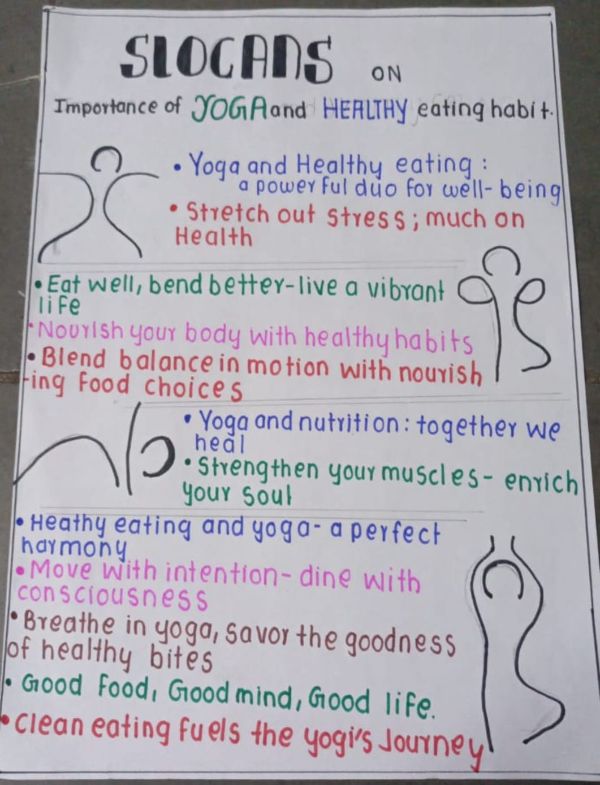 SLOGANS ON
Importance of YOGA and HEALTHY eating habit.
• Yoga and Healthy eating :
a powerful duo for well-being
• Stretch out stress ; much on
Health
• Eat well, bend better-live a vibrant
life
• Nourish your body with healthy habits
• Blend balance in motion with nourish
-ing food choices
• Yoga and nutrition : together we
heal
• Strengthen your muscles- enrich
your soul
• Heathy eating and yoga- a perfect
harmony
• Move with intention- dine with
consciousness
• Breathe in yoga, savor the goodness
of healthy bites
• Good Food, Good mind, Good life.
• Clean eating fuels the yogi's Journey